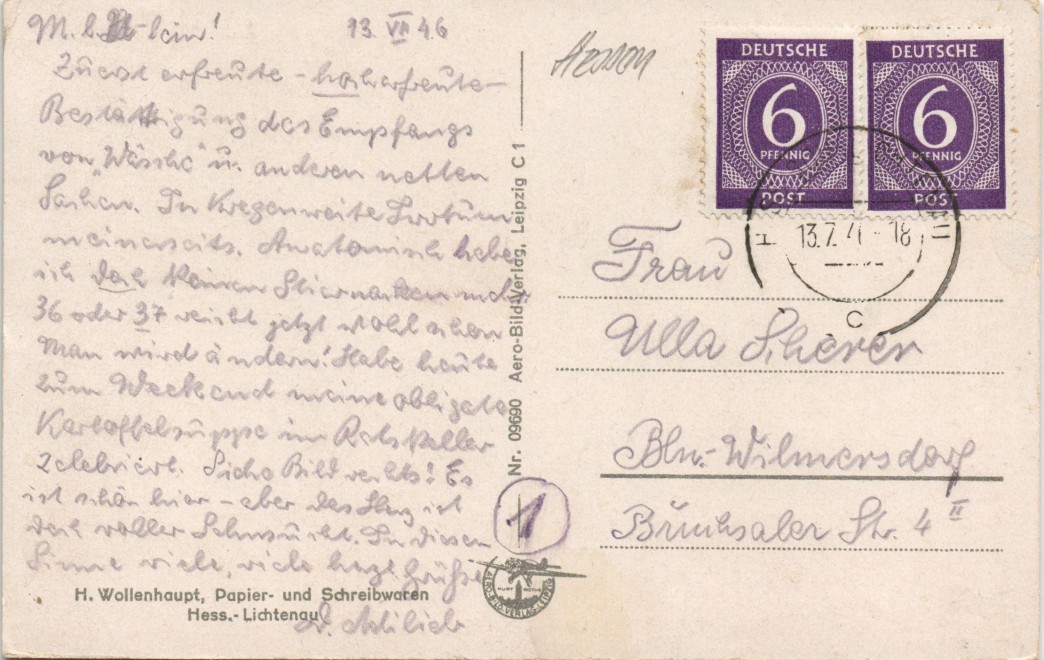 M. l. -lein! 13. VII 46
Zuerst erfreute - hocherfreute -
Bestätigung des Empfangs
von "Wäsche" u. anderen netten
Sachen. In Kragenweite Irrtum
meinerseits. Anatomisch habe
ich doch keinen Stiernacken mehr.
36 oder 37 reicht jetzt wohl schon
Man wird ändern! Habe heute
zum Weekend meine obligate
Kartoffelsuppe im Ratskeller
zelebriert. Siehe Bild rechts! Es
ist schön hier - aber das Herz ist
doch voller Sehnsucht. In diesem
Sinne viele, viele herzl. Grüße
D.
H. Wollenhaupt, Papier- und Schreibwaren
Hess.-Lichtenau
Nr. 09690 Aero-Bild-Verlag, Leipzig C 1
1
AERO-BILD-VERLAG-LEIPZIG
Hessen
DEUTSCHE
6
PFENNIG
POST
DEUTSCHE
6
PFENNIG
POST
13.7.4 -18
C
Frau
Ulla Scherer
Bln.-Wilmersdorf
Bruchsaler Str. 4 II